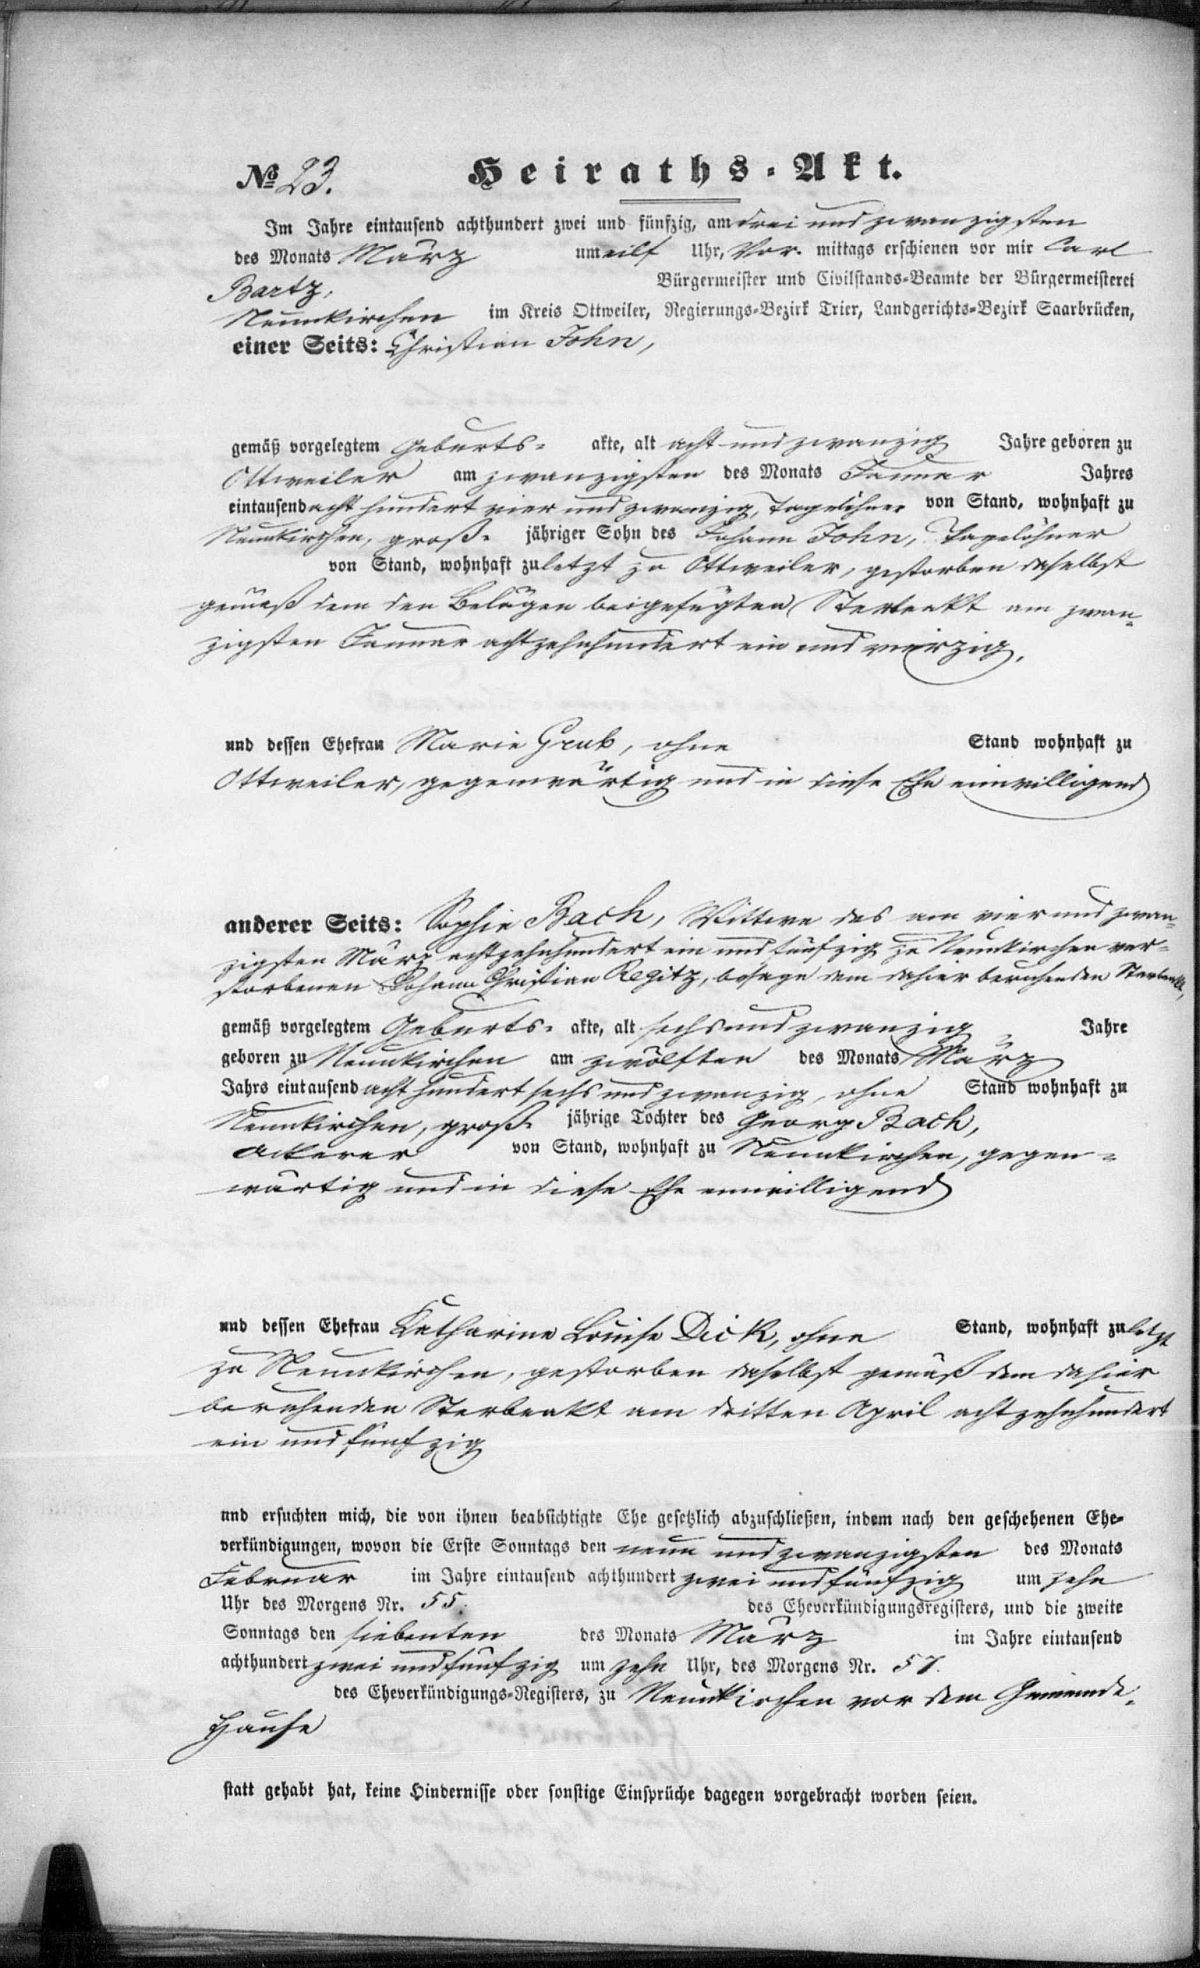 № 23. Heiraths-Akt.
Im Jahre eintausend achthundert zwei und fünfzig, am drei und zwanzigsten
des Monats März um eilf Uhr, Vor. mittags erschienen vor mir Carl
Bartz, Bürgermeister und Civilstands-Beamte der Bürgermeisterei
Neunkirchen im Kreis Ottweiler, Regierungs-Bezirk Trier, Landgerichts-Bezirk Saarbrücken,
einer Seits: Christian John,
gemäß vorgelegtem Geburts- akte, alt acht und zwanzig Jahre geboren zu
Ottweiler am zwanzigsten des Monats Januar Jahres
eintausend acht hundert vier und zwanzig, Tagelöhner von Stand, wohnhaft zu
Neunkirchen, groß- jähriger Sohn des Johann John, Tagelöhner
von Stand, wohnhaft zu letzt zu Ottweiler, gestorben daselbst
gemäß dem den Belägen beigefügten Sterbeakt am zwan-
zigsten Januar achtzehnhundert ein und vierzig,
und dessen Ehefrau Marie Grub, ohne Stand wohnhaft zu
Ottweiler, gegenwärtig und in diese Ehe einwilligend
anderer Seits: Sophie Bach, Wittwe des am vier und zwan-
zigsten März achtzehnhundert ein und fünfzig zu Neunkirchen ver-
storbenen Johann Christian Regitz, besage dem dahier beruhenden Sterbeakt,
gemäß vorgelegtem Geburts- akte, alt sechs und zwanzig Jahre
geboren zu Neunkirchen am zwölften des Monats März
Jahrs eintausend acht hundert sechs und zwanzig, ohne Stand wohnhaft zu
Neunkirchen, groß- jährige Tochter des Georg Bach,
Ackerer von Stand, wohnhaft zu Neunkirchen, gegen-
wärtig und in diese Ehe einwilligend
und dessen Ehefrau Katharine Louise Dick, ohne Stand, wohnhaft zu letzt
zu Neunkirchen, gestorben daselbst gemäß dem dahier
beruhenden Sterbeakt am dritten April achtzehnhundert
ein und fünfzig
und ersuchten mich, die von ihnen beabsichtigte Ehe gesetzlich abzuschließen, indem nach den geschehenen Ehe-
verkündigungen, wovon die Erste Sonntags den neun und zwanzigsten des Monats
Februar im Jahre eintausend achthundert zwei und fünfzig um zehn
Uhr des Morgens Nr. 55. des Eheverkündigungsregisters, und die zweite
Sonntags den siebenten des Monats März im Jahre eintausend
achthundert zwei und fünfzig um zehn Uhr, des Morgens Nr. 57.
des Eheverkündigungs-Registers, zu Neunkirchen vor dem Gemeinde-
Hause
statt gehabt hat, keine Hindernisse oder sonstige Einsprüche dagegen vorgebracht worden seien.